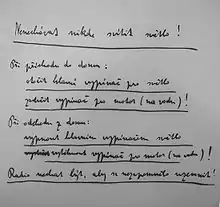 Nenechávat nikde svítit světlo!
Při příchodu do domu:
otočit hlavní vypínač pro světlo
pro motor (na vodu)!
Při odchodu z domu:
vypnout hlavním vypínačem světlo
vypínač pro motor (na vodu)!
Radio nechat být, aby se nezapomnělo vypnout!